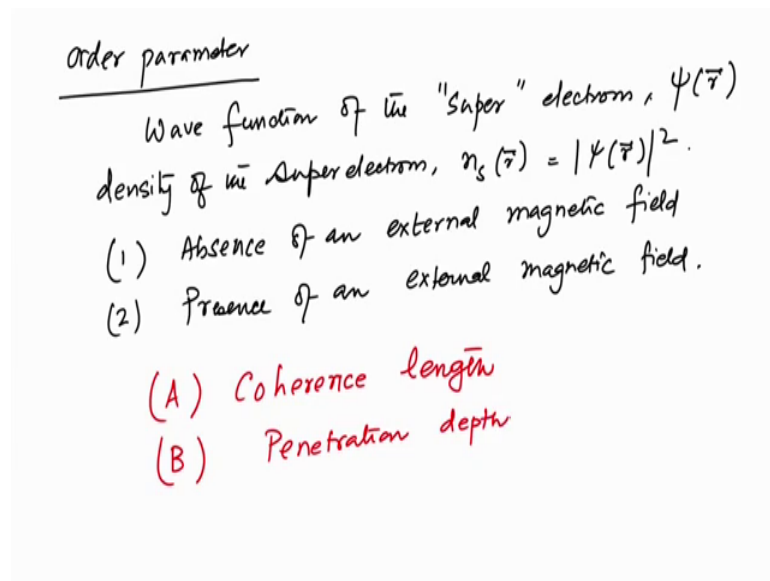 order parameter
Wave function of the "Super" electrons, ψ(r⃗)
density of the Superelectrons, nₛ(r⃗) = |ψ(r⃗)|².
(1) Absence of an external magnetic field
(2) Presence of an external magnetic field.
(A) Coherence length
(B) Penetration depth